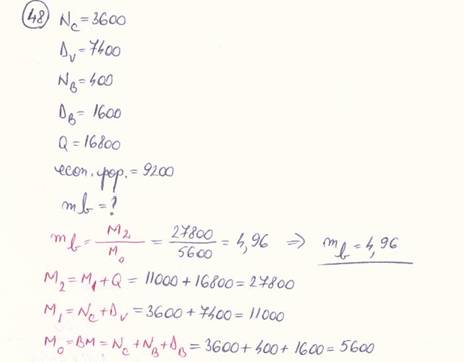 48 N_C = 3600
D_V = 7400
N_B = 400
D_B = 1600
Q = 16800
econ. pop. = 9200
m b = ?
m b = M2 / M0 = 27800 / 5600 = 4,96 => m b = 4,96
M2 = M1 + Q = 11000 + 16800 = 27800
M1 = N_C + D_V = 3600 + 7400 = 11000
M0 = BM = N_C + N_B + D_B = 3600 + 400 + 1600 = 5600